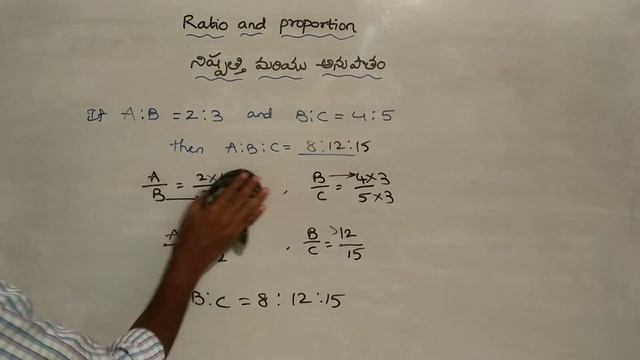 Ratio and proportion
నిష్పత్తి మరియు అనుపాతం
If A:B = 2:3 and B:C = 4:5
then A:B:C = 8:12:15
A/B = 2× , B/C = 4×3/5×3
, B/C = 12/15
B:C = 8:12:15